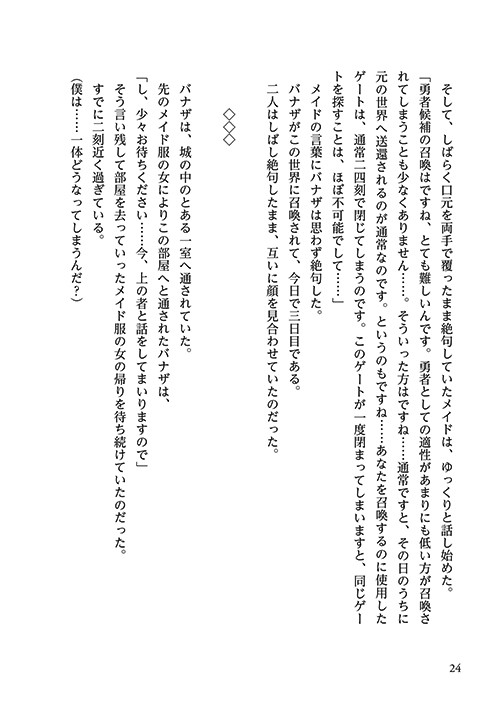 そして、しばらく口元を両手で覆ったまま絶句していたメイドは、ゆっくりと話し始めた。
「勇者候補の召喚はですね、とても難しいんです。勇者としての適性があまりにも低い方が召喚さ
れてしまうことも少なくありません……。そういった方はですね……通常ですと、その日のうちに
元の世界へ送還されるのが通常なのです。というのもですね……あなたを召喚するのに使用した
ゲートは、通常二四刻で閉じてしまうのです。このゲートが一度閉まってしまいますと、同じゲー
トを探すことは、ほぼ不可能でして……」
メイドの言葉にバナザは思わず絶句した。
バナザがこの世界に召喚されて、今日で三日目である。
二人はしばし絶句したまま、互いに顔を見合わせていたのだった。
◇◇◇
バナザは、城の中のとある一室へ通されていた。
先のメイド服の女によりこの部屋へと通されたバナザは、
「し、少々お待ちください……今、上の者と話をしてまいりますので」
そう言い残して部屋を去っていったメイド服の女の帰りを待ち続けていたのだった。
すでに二刻近く過ぎている。
(僕は……一体どうなってしまうんだ?)
24